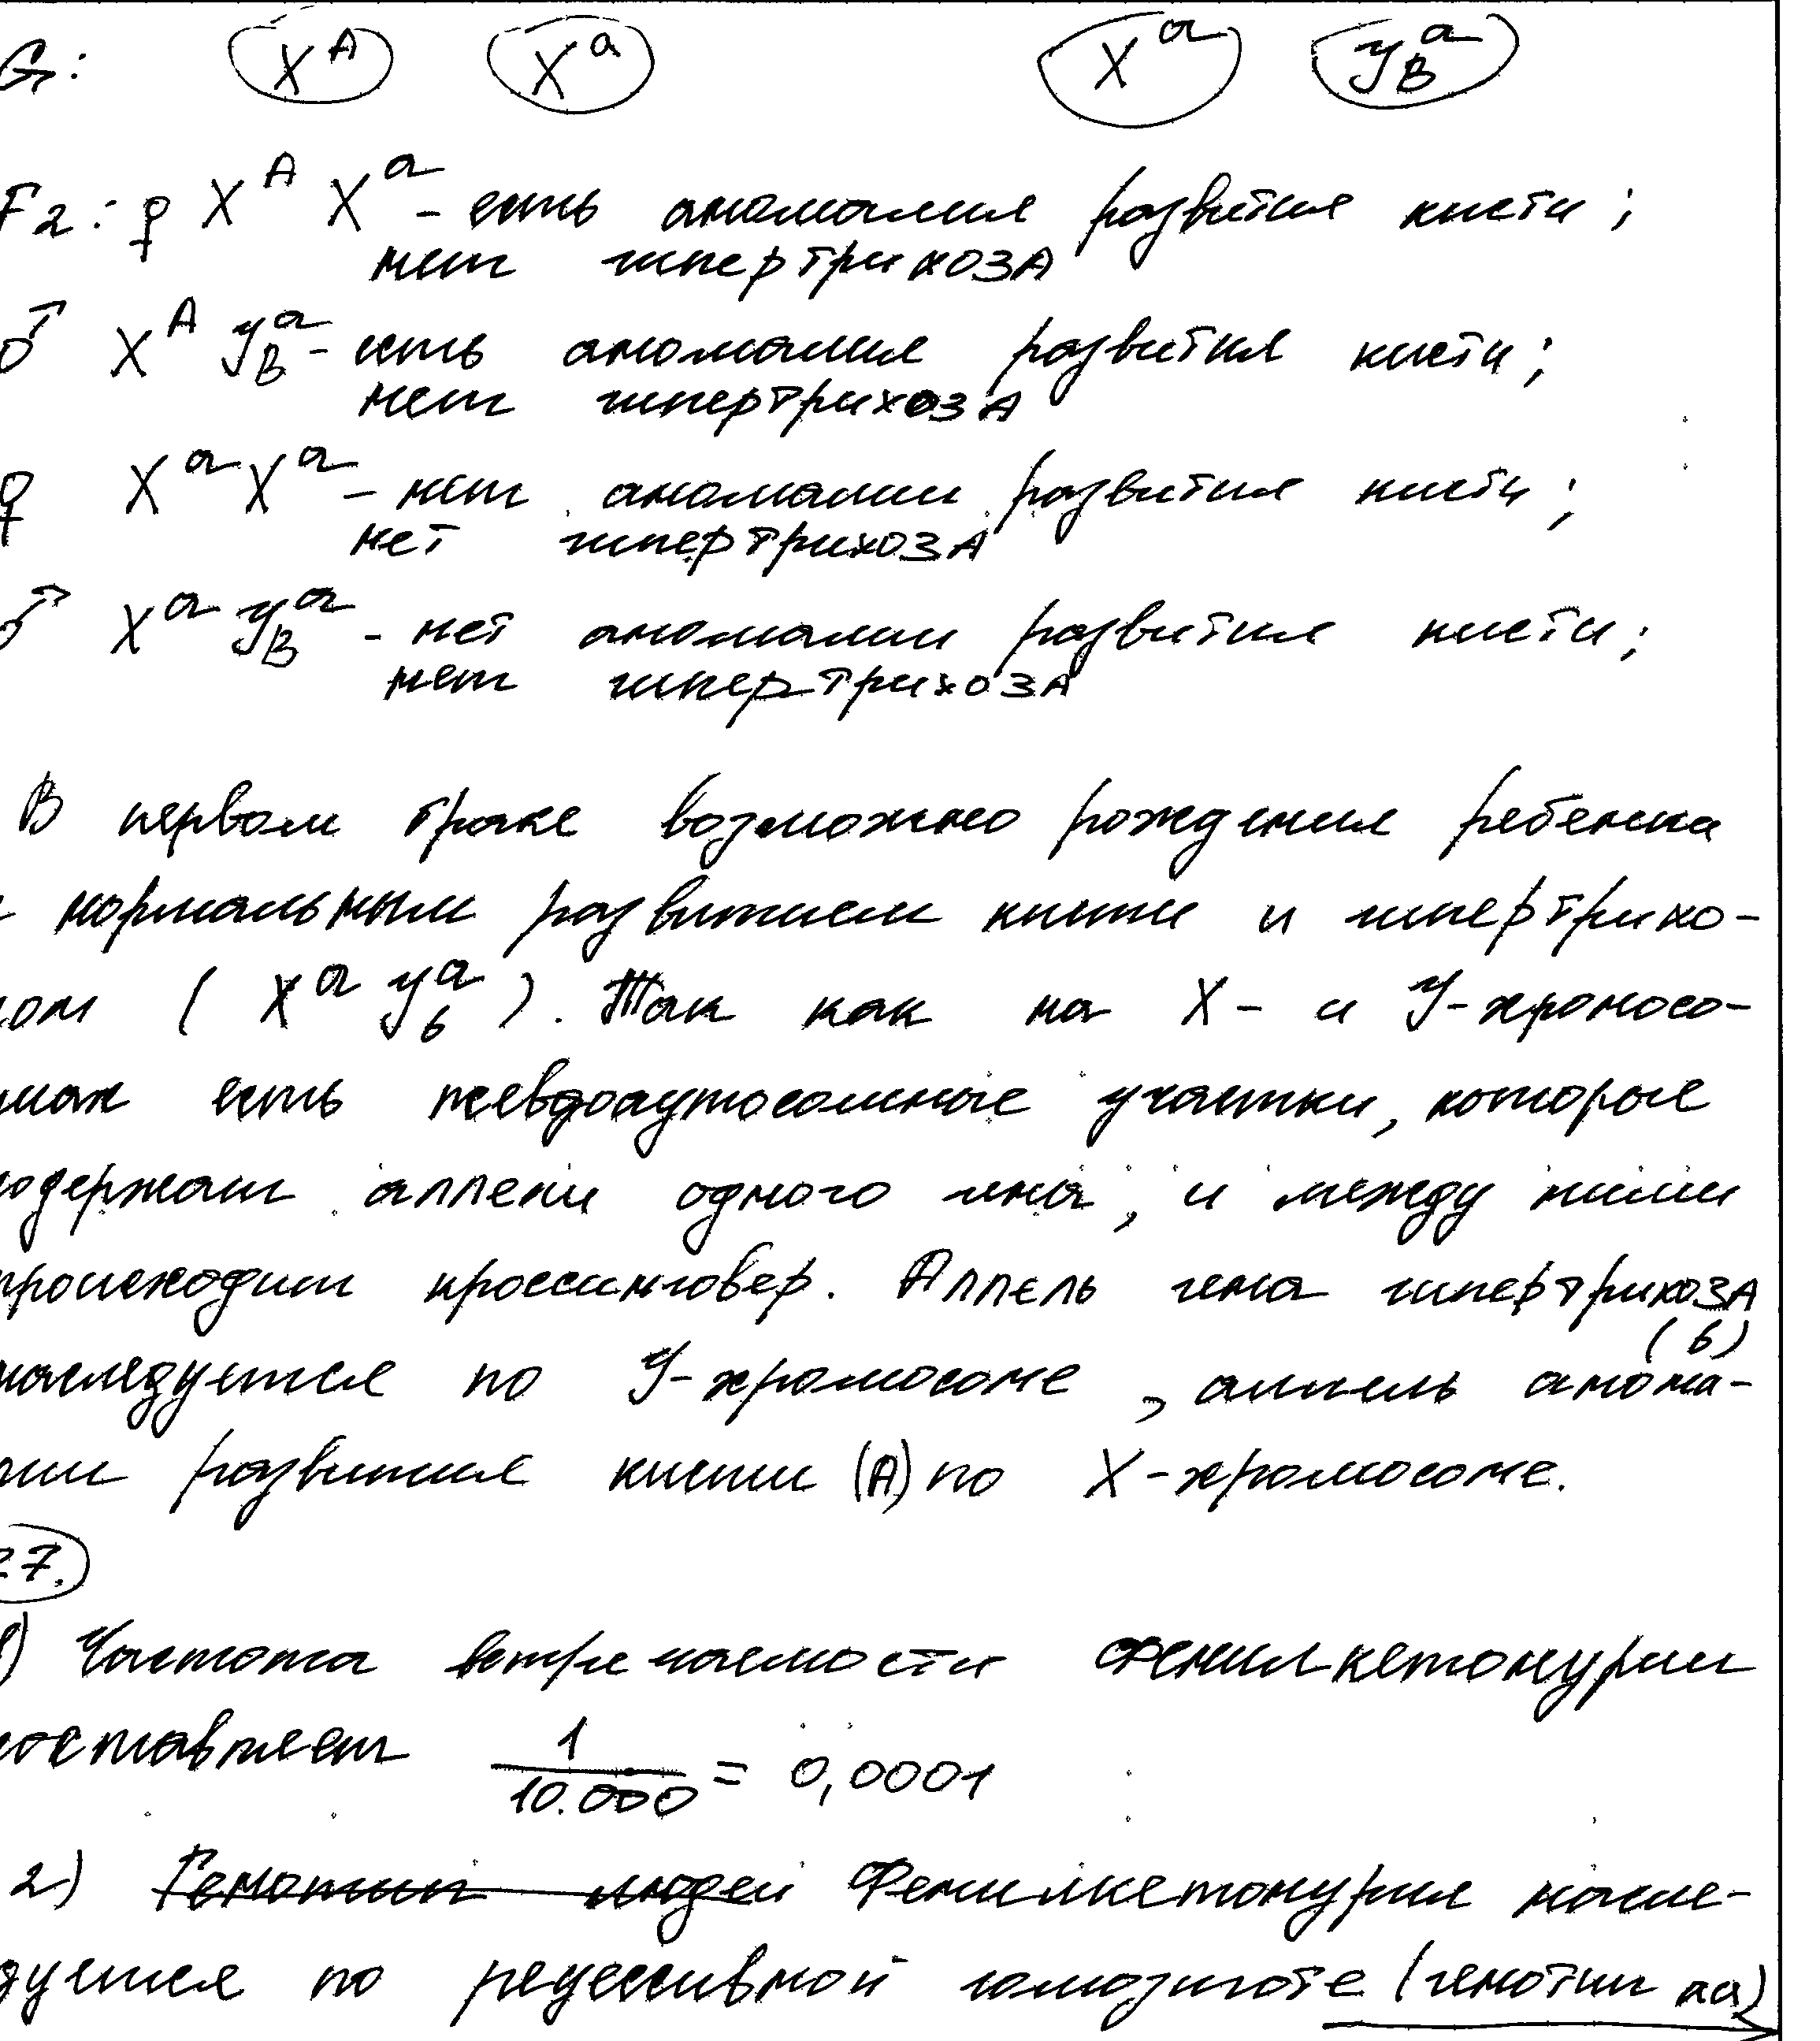 G: X^A X^a X^a y_B^a
F2: ♀ X^A X^a - есть аномалия развития кисти;
нет гипертрихозА
♂ X^A y_B^a - есть аномалия развития кисти;
нет гипертрихозА
♀ X^a X^a - нет аномалии развития кисти;
нет гипертрихозА
♂ X^a y_B^a - нет аномалии развития кисти;
нет гипертрихозА
В первом браке возможно рождения ребенка
нормальным развитием кисти и гипертрихо-
зом (X^a y_b^a). Так как на X- и У-хромосо-
мах есть псевдоаутосомные участки, которые
содержат аллели одного гена, и между ними
происходит кроссинговер. Аллель гена гипертрихозА
(b)
наследуется по У-хромосоме, аллель анома-
лии развития кисти (А) по X-хромосоме.
27.
1) Частота встречаемости фенилкетонурии
составляет 1/10.000 = 0,0001
2) Генотип людей Фенилкетонурия насле-
дуется по рецессивной гомозиготе (генотип аа)